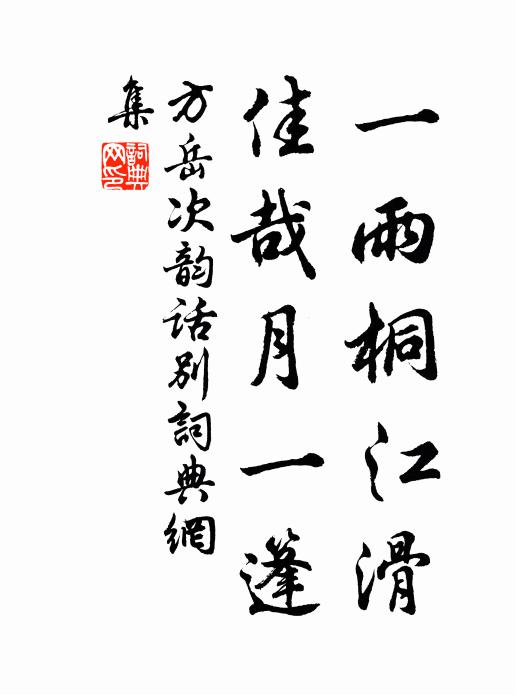 一雨桐江滑
佳哉月一篷
方岳次韵话别詞典網
集
詞典
网印